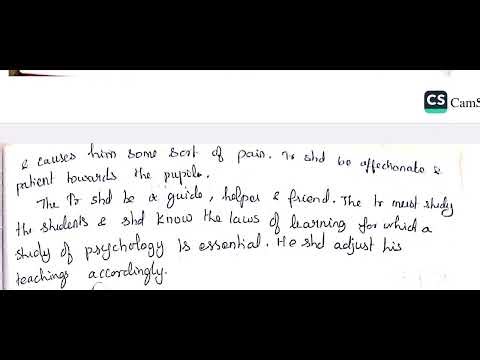 CS CamS
& causes him some sort of pain. Tr shd be affectionate &
patient towards the pupils.
The Tr shd be a guide, helper & friend. The tr must study
the students & shd know the laws of learning for which a
study of psychology is essential. He shd adjust his
teachings accordingly.